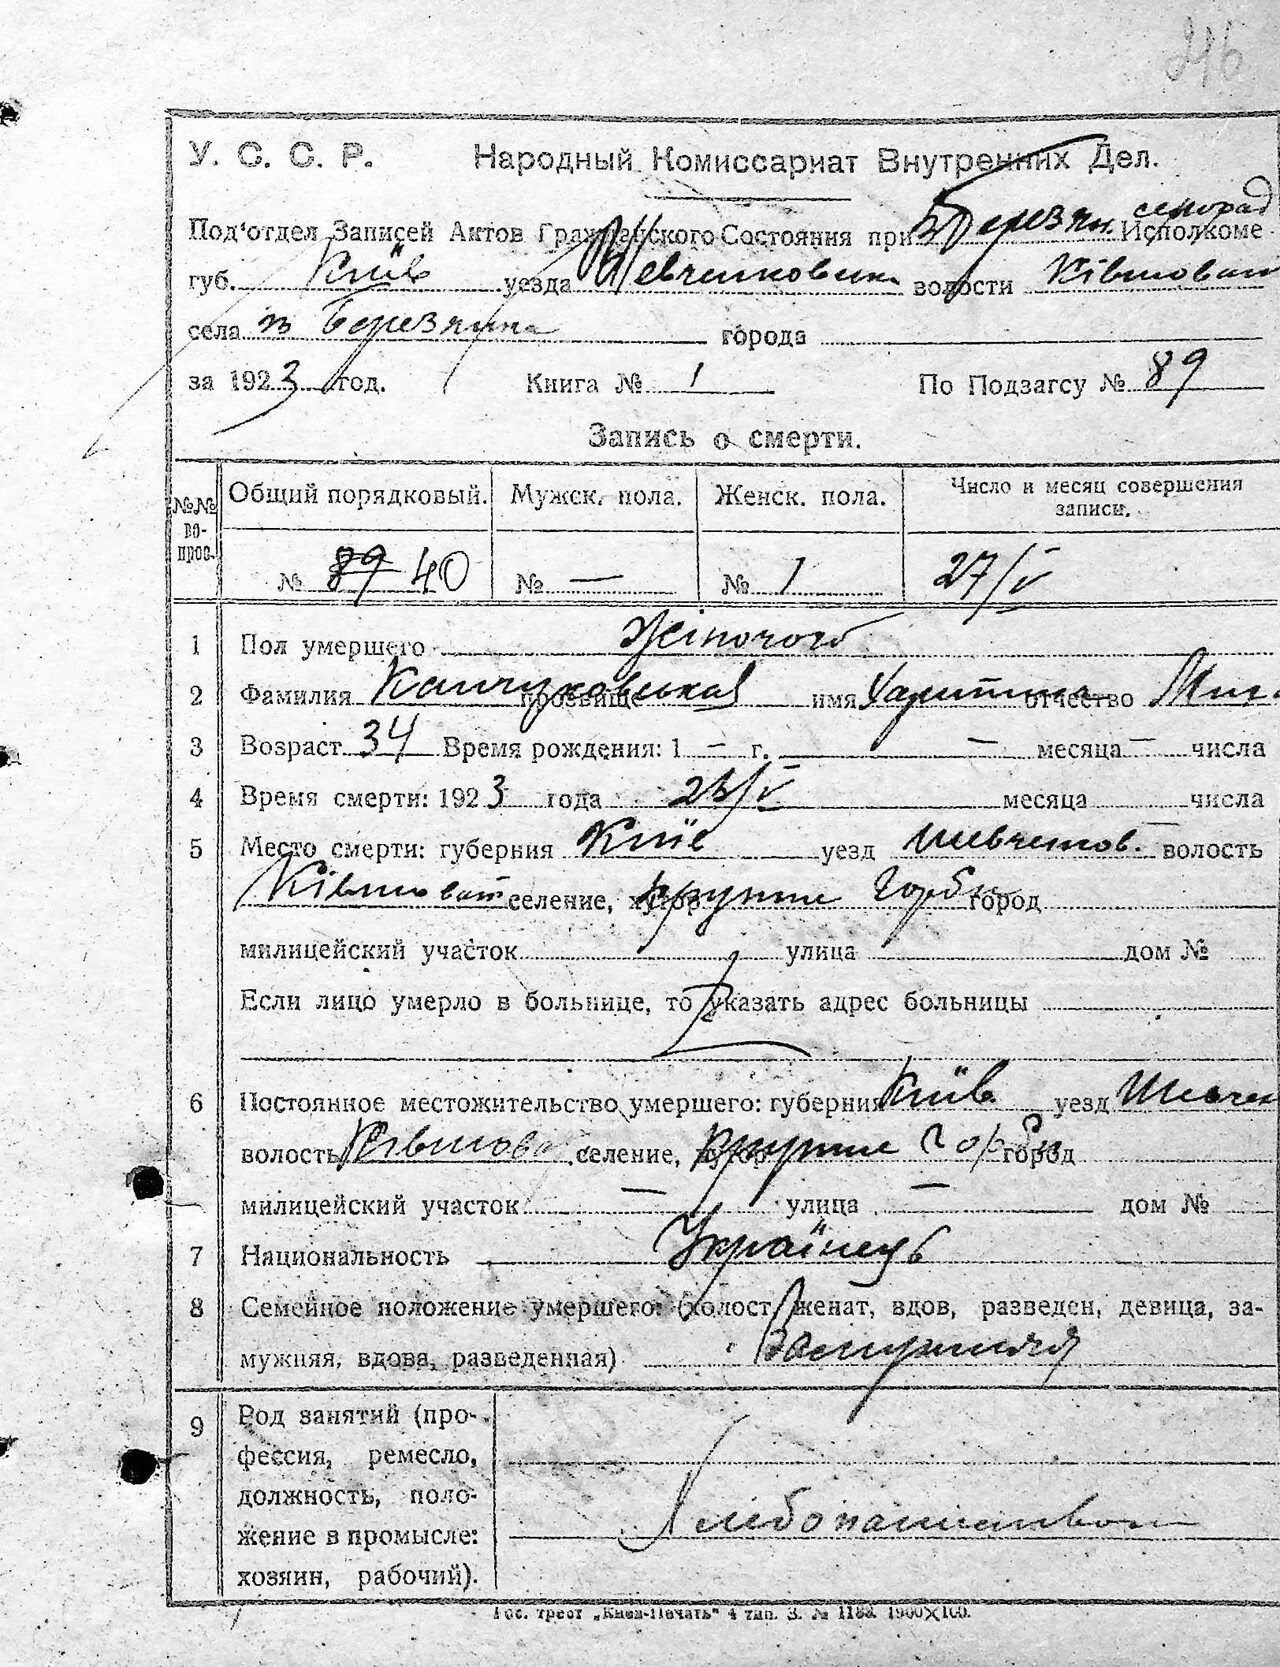 246
У. С. С. Р. Народный Комиссариат Внутренних Дел.
сельрад
Под'отдел Записей Актов Гражданского Состояния при Березян. Исполкоме
губ. Київ уезда Шевченковськ волости Ківшоват
села Березянка города
за 1923 год. Книга № 1 По Подзагсу № 89
Запись о смерти.
№№ во- прос. Общий порядковый. Мужск. пола. Женск. пола. Число и месяц совершения записи.
№ 89 40 № — № 1 27/V
1 Пол умершего Жіночого
2 Фамилия прозвище имя Харитина отчество Мих.
3 Возраст 34 Время рождения: 1 – г. – месяца – числа
4 Время смерти: 1923 года 23/V месяца числа
5 Место смерти: губерния Київ уезд Шевченков. волость
Ківшоват селение, хутор Круті Горби город
милицейский участок улица дом №
Если лицо умерло в больнице, то указать адрес больницы
6 Постоянное местожительство умершего: губерния Київ уезд Шевчен
волость Ківшова селение, хутор Круті Горби город
милицейский участок — улица — дом №
7 Национальность Українець
8 Семейное положение умершего: (холост, женат, вдов, разведен, девица, за-
мужняя, вдова, разведенная) Замужняя
9 Род занятий (про-
фессия, ремесло,
должность, поло- Хлебопашество
жение в промысле:
хозяин, рабочий).
Гос. трест „Киев-Печать“ 4 тип. З. № 1183. 1900×100.